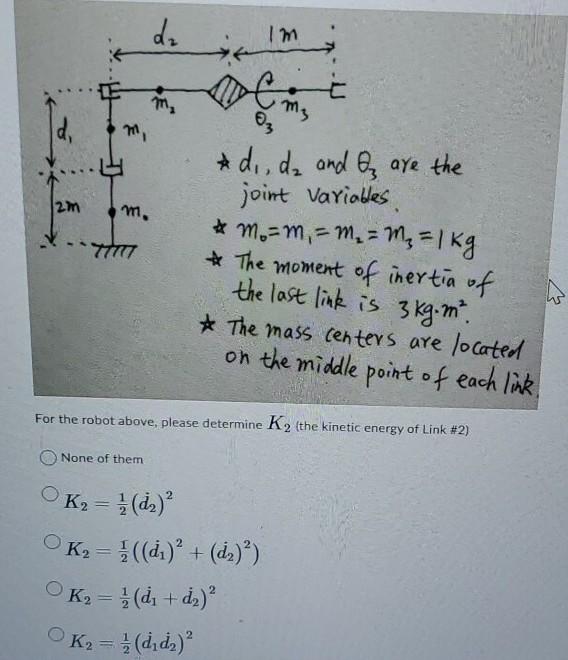 d₂ 1m
m₂ θ₃ m₃
d₁ m₁
2m m₀
* d₁, d₂ and θ₃ are the
joint variables.
* m₀=m₁=m₂=m₃=1kg
* The moment of inertia of
the last link is 3kg.m².
* The mass centers are located
on the middle point of each link.
For the robot above, please determine K₂ (the kinetic energy of Link #2)
None of them
K₂ = ½(ḋ₂)²
K₂ = ½((ḋ₁)² + (ḋ₂)²)
K₂ = ½(ḋ₁ + ḋ₂)²
K₂ = ½(ḋ₁ḋ₂)²